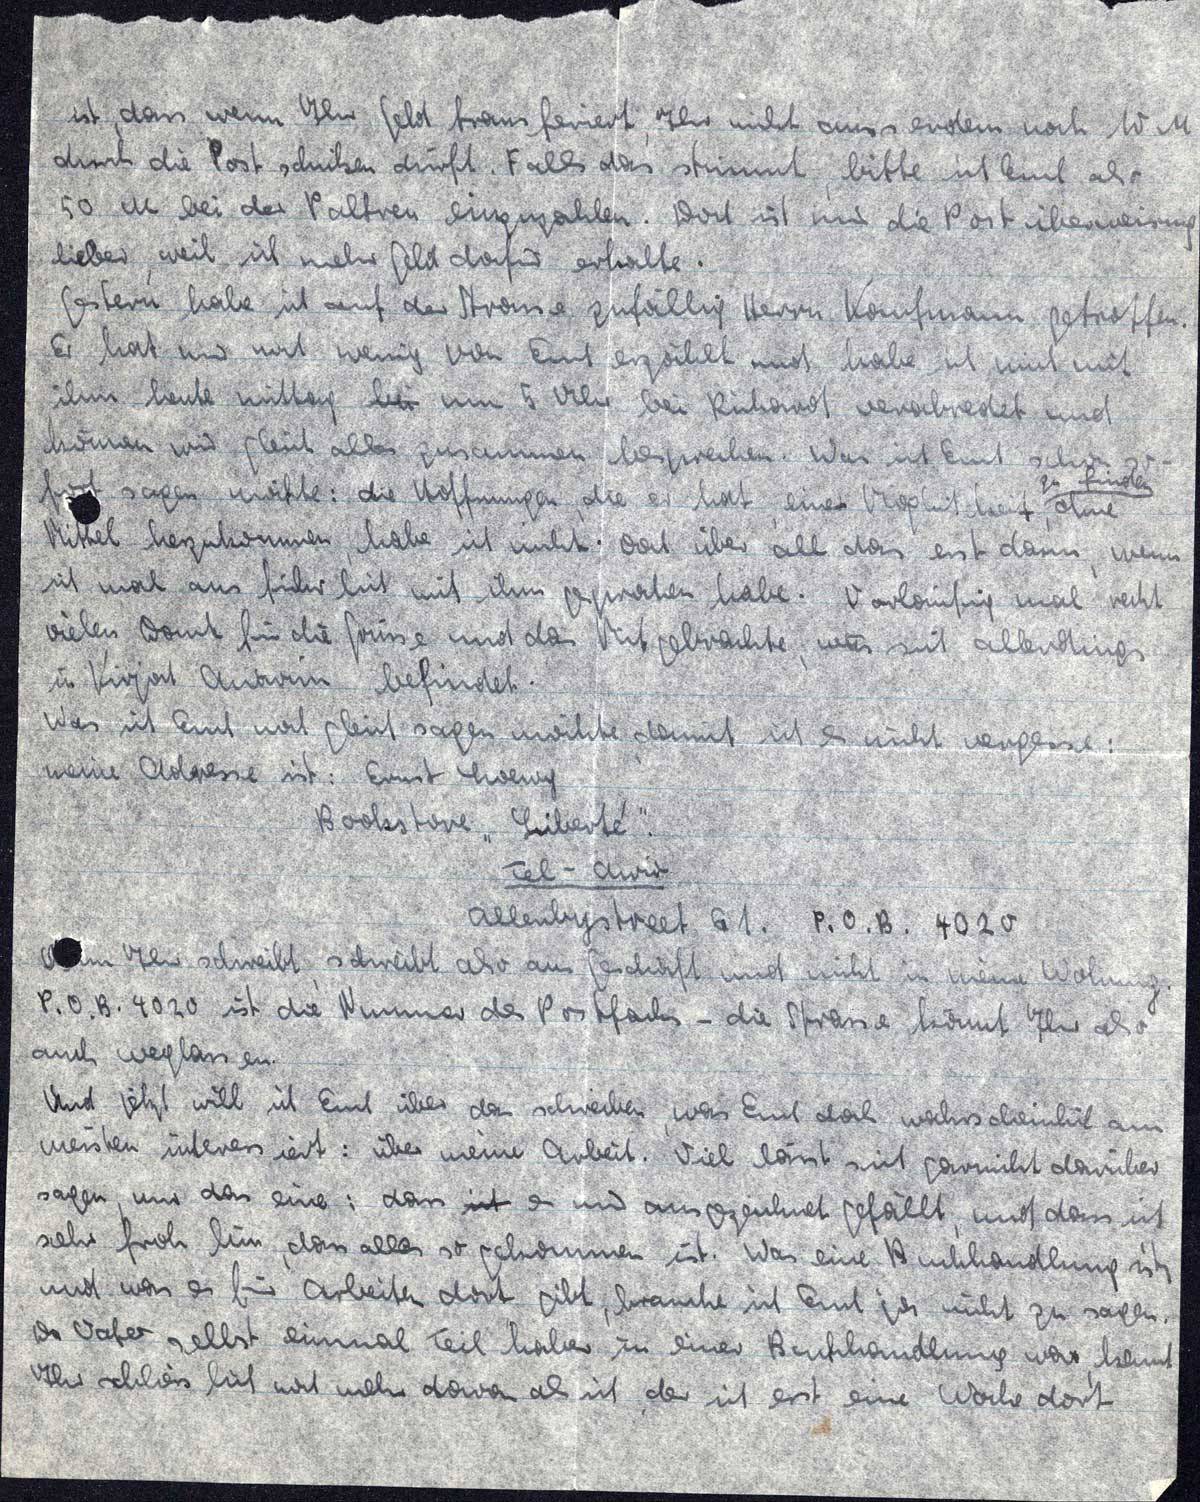 ist, dass wenn Ihr Geld transferiert, Ihr nicht ausserdem noch 10 M
durch die Post schicken dürft. Falls das stimmt, bitte ich Euch also
50 M bei der Paltreu einzuzahlen. Doch ist mir die Postüberweisung
lieber, weil ich mehr Geld dafür erhalte.
Gestern habe ich auf der Strasse zufällig Herrn Kaufmann getroffen.
Er hat mir noch wenig von Euch erzählt und habe ich mich mit
ihm heute mittag um 5 Uhr bei Richard verabredet und
können wir gleich alles zusammen besprechen. Was ich Euch schon so-
fort sagen möchte: die Hoffnungen, die er hat, eine Möglichkeit zu finden, ohne
Mittel herzukommen, habe ich nicht. Doch über all das erst dann, wenn
ich mal ausführlich mit ihm gesprochen habe. Vorläufig mal recht
vielen Dank für die Grüsse und das Mitgebrachte, was sich allerdings
in Kirjat Anavim befindet.
Was ich Euch noch gleich sagen möchte, damit ich es nicht vergesse:
meine Adresse ist: Ernst Loewy
Bookstore „Liberté".
Tel-Aviv
Allenbystreet 61. P.O.B. 4020
Wenn Ihr schreibt, schreibt also ans Geschäft und nicht in meine Wohnung.
P.O.B. 4020 ist die Nummer des Postfachs – die Strasse könnt Ihr also
auch weglassen.
Und jetzt will ich Euch über das schreiben, was Euch doch wahrscheinlich am
meisten interessiert: über meine Arbeit. Viel lässt sich garnicht darüber
sagen, nur das eine: dass es mir ausgezeichnet gefällt, und dass ich
sehr froh bin, dass alles so gekommen ist. Was eine Buchhandlung ist,
und was es für Arbeiten dort gibt, brauche ich Euch ja nicht zu sagen.
Da Vater selbst einmal Teilhaber in einer Buchhandlung war, kennt
Ihr schliesslich noch mehr davon als ich, der ich erst eine Woche dort